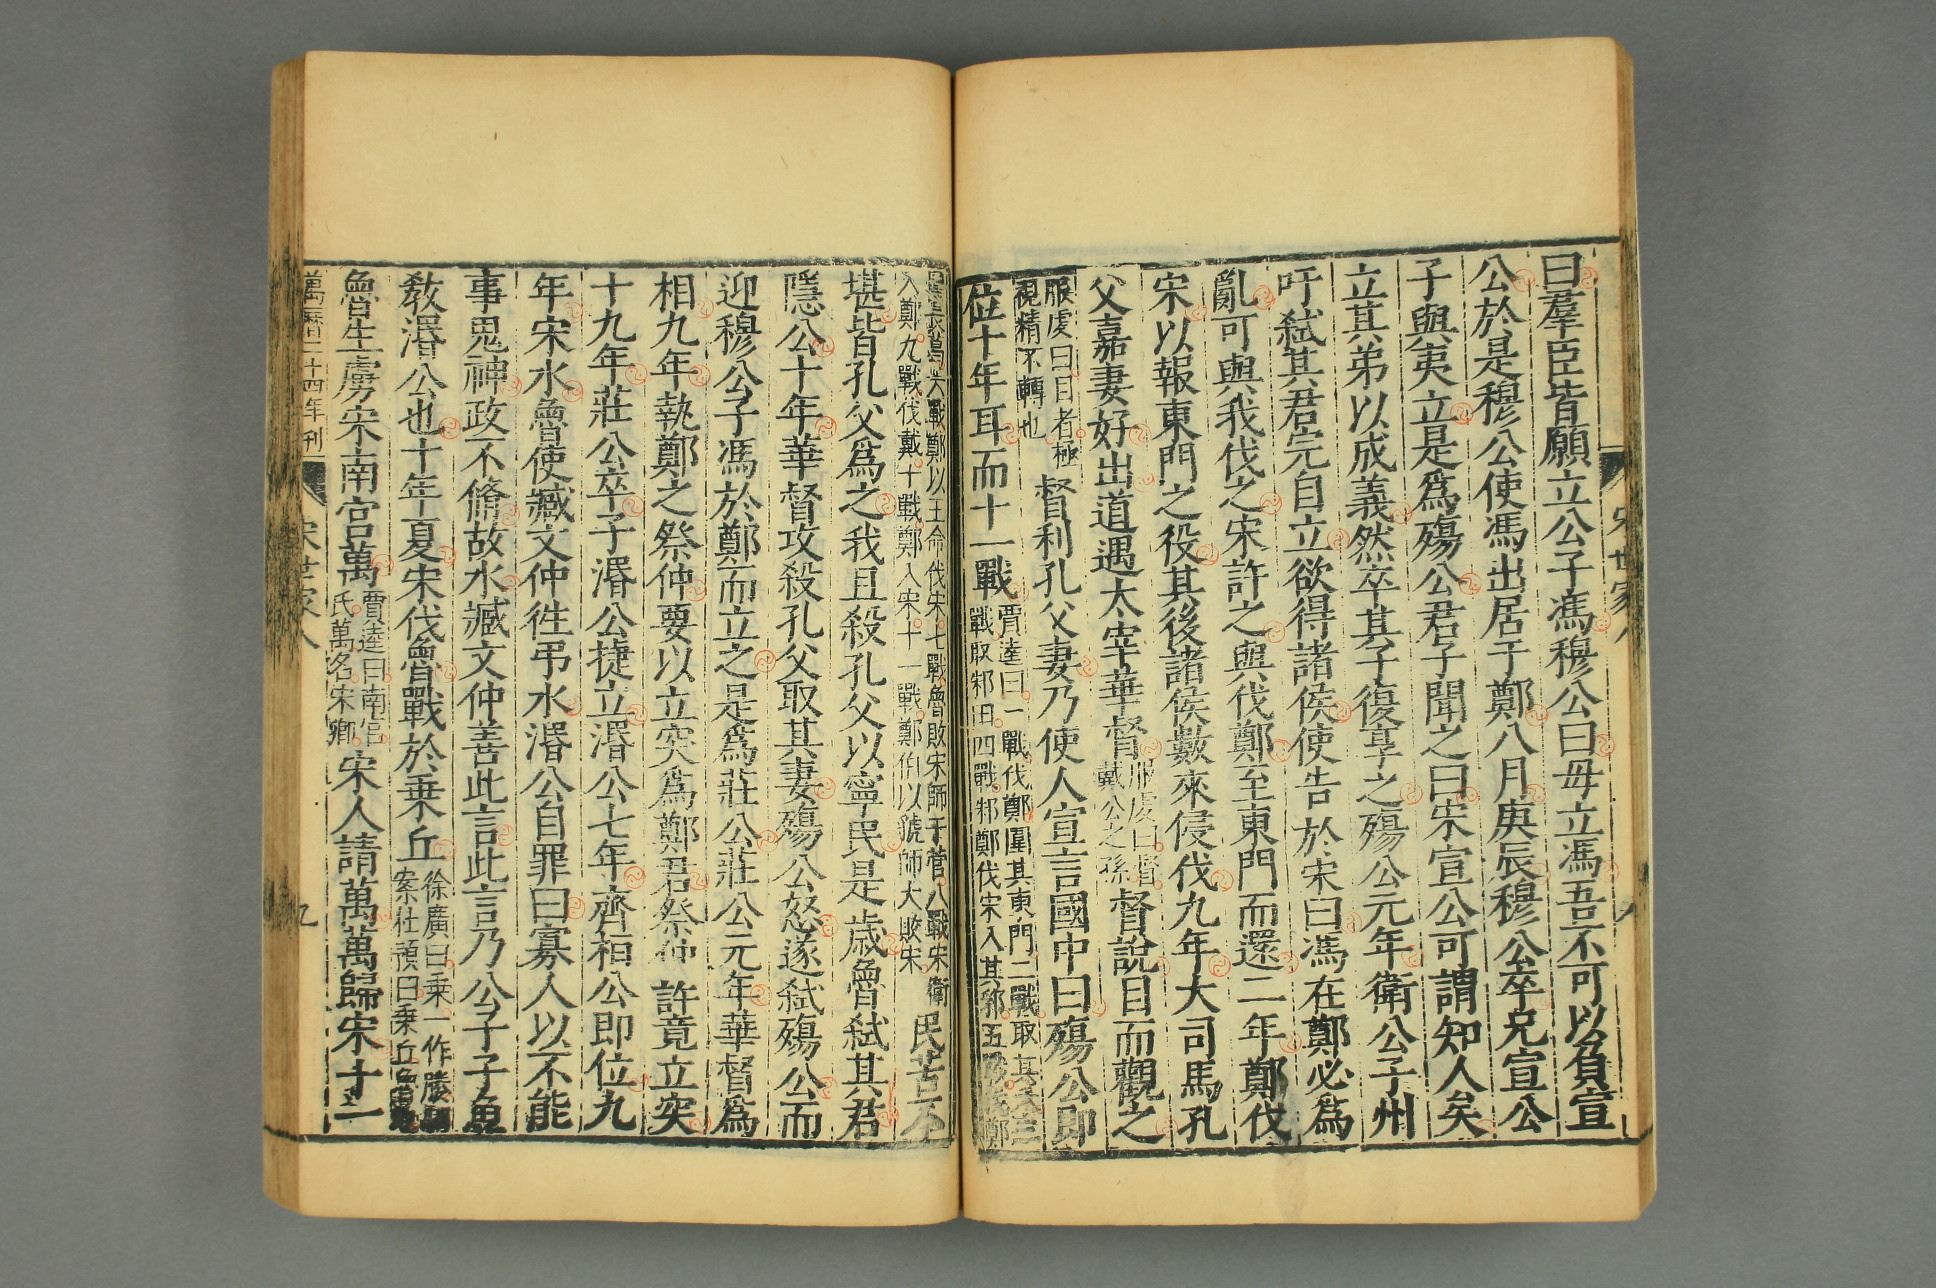 曰羣臣皆願立公子馮穆公曰毋立馮吾不可以負宣
公於是穆公使馮出居于鄭八月庚辰穆公卒兄宣公
子與夷立是爲殤公君子聞之曰宋宣公可謂知人矣
立其弟以成義然卒其子復享之殤公元年衛公子州
吁弑其君完自立欲得諸侯使告於宋曰馮在鄭必爲
亂可與我伐之宋許之與伐鄭至東門而還二年鄭伐
宋以報東門之役其後諸侯數來侵伐九年大司馬孔
父嘉妻好出道遇太宰華督
服虔曰督
戴公之孫
督說目而觀之
服虔曰目者極
視精不轉也
督利孔父妻乃使人宣言國中曰殤公即
位十年耳而十一戰
賈逵曰一戰伐鄭圍其東門二戰取其禾三
戰取邾田四戰邾鄭伐宋入其郛五戰伐鄭
圍長葛六戰鄭以王命伐宋七戰魯敗宋師于菅八戰宋衛
入鄭九戰伐戴十戰鄭入宋十一戰鄭伯以虢師大敗宋
民苦不
堪皆孔父爲之我且殺孔父以寧民是歲魯弑其君
隱公十年華督攻殺孔父取其妻殤公怒遂弑殤公而
迎穆公子馮於鄭而立之是爲莊公莊公元年華督爲
相九年執鄭之祭仲要以立突爲鄭君祭仲許竟立突
十九年莊公卒子湣公捷立湣公七年齊桓公即位九
年宋水魯使臧文仲徃弔水湣公自罪曰寡人以不能
事鬼神政不脩故水臧文仲善此言此言乃公子子魚
敎湣公也十年夏宋伐魯戰於乗丘
徐廣曰乗一作媵
案杜預曰乗丘魯
魯生虜宋南宮萬
賈逵曰南宮
氏萬名宋卿
宋人請萬萬歸宋十一
萬曆二十四年刊
宋世家八
九
宋世家八